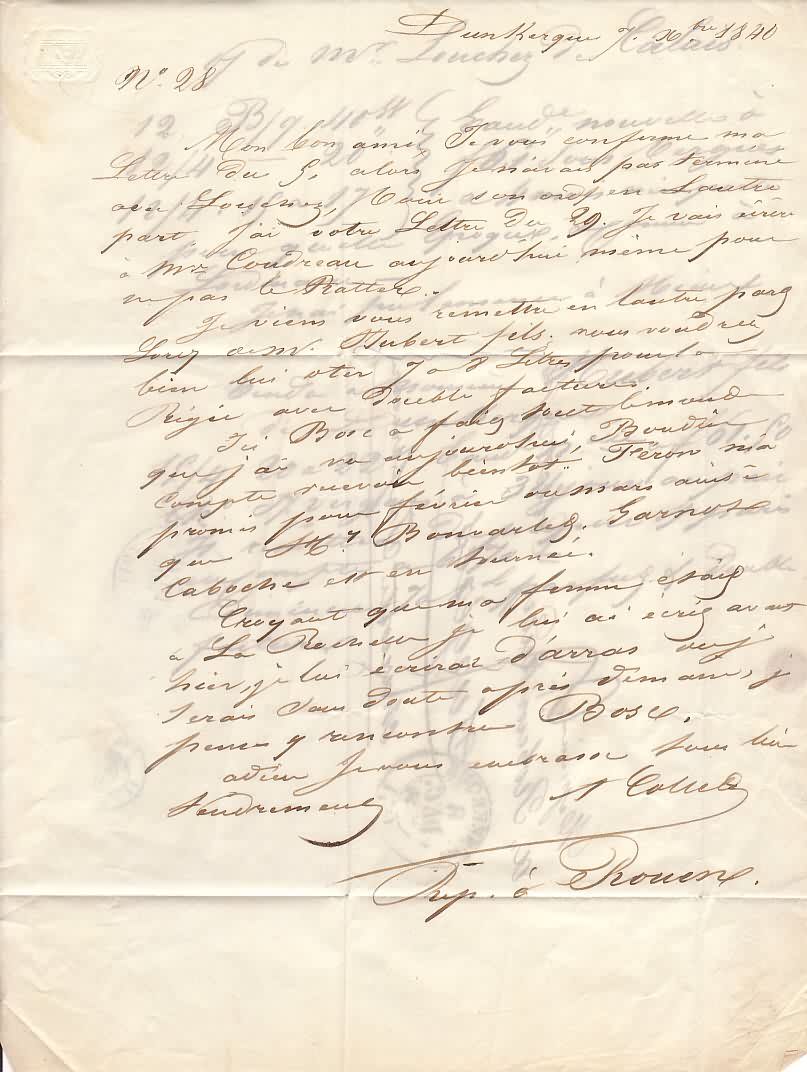 Dunkerque 7. Xbre 1840
No. 28
Mon bon ami, Je vous confirme ma
Lettre du 5, alors Je n'avais pas terminé
avec Louchez, son ord en Lautre
part, J'ai votre Lettre du 29. Je vais écrire
à Mr Coudreau aujourd'hui même pour
ne pas le Ratter.
Je viens vous remettre en lautre part
de Mr. Hubert fils, vous voudrez
bien lui oter 7 a 8 Litres pour la
Régie avec double factures.
Ici Bosc a fait tout le monde
que j'ai vu aujourdhui, Boudin
compte recevoir bientot, Féron m'a
promis pour février ou mars ainsi
que Bonvarlet. Garnot
Caboche est en tournée.
Croyant que ma femme était
a La Rochelle je lui ai ecrit avant
hier, je lui écrirai d'arras ou j
serais sans doute après demain, j
pense y rencontrer Bosc.
adieu Je vous embrasse tous bien
tendrement
Rép. à Rouen.